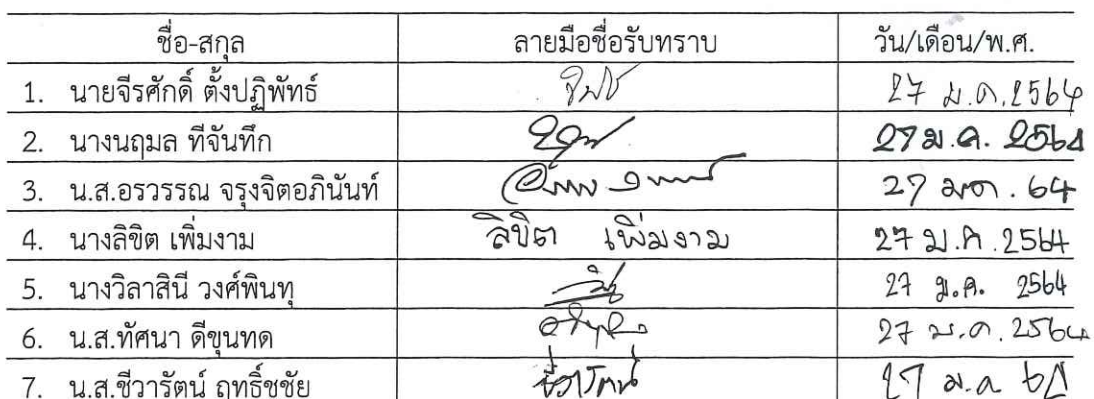 ชื่อ-สกุล ลายมือชื่อรับทราบ วัน/เดือน/พ.ศ.
1. นายจีรศักดิ์ ตั้งปฏิพัทธ์ 27 ม.ค.2564
2. นางนฤมล ทีจันทึก 27 ม.ค. 2564
3. น.ส.อรวรรณ จรุงจิตอภินันท์ 27 มค. 64
4. นางลิขิต เพิ่มงาม ลิขิต เพิ่มงาม 27 ม.ค.2564
5. นางวิลาสินี วงศ์พินทุ 27 ม.ค. 2564
6. น.ส.ทัศนา ดีขุนทด 27 ม.ค.2564
7. น.ส.ชีวารัตน์ ฤทธิ์ชชัย ชีวารัตน์ 27 ม.ค 64